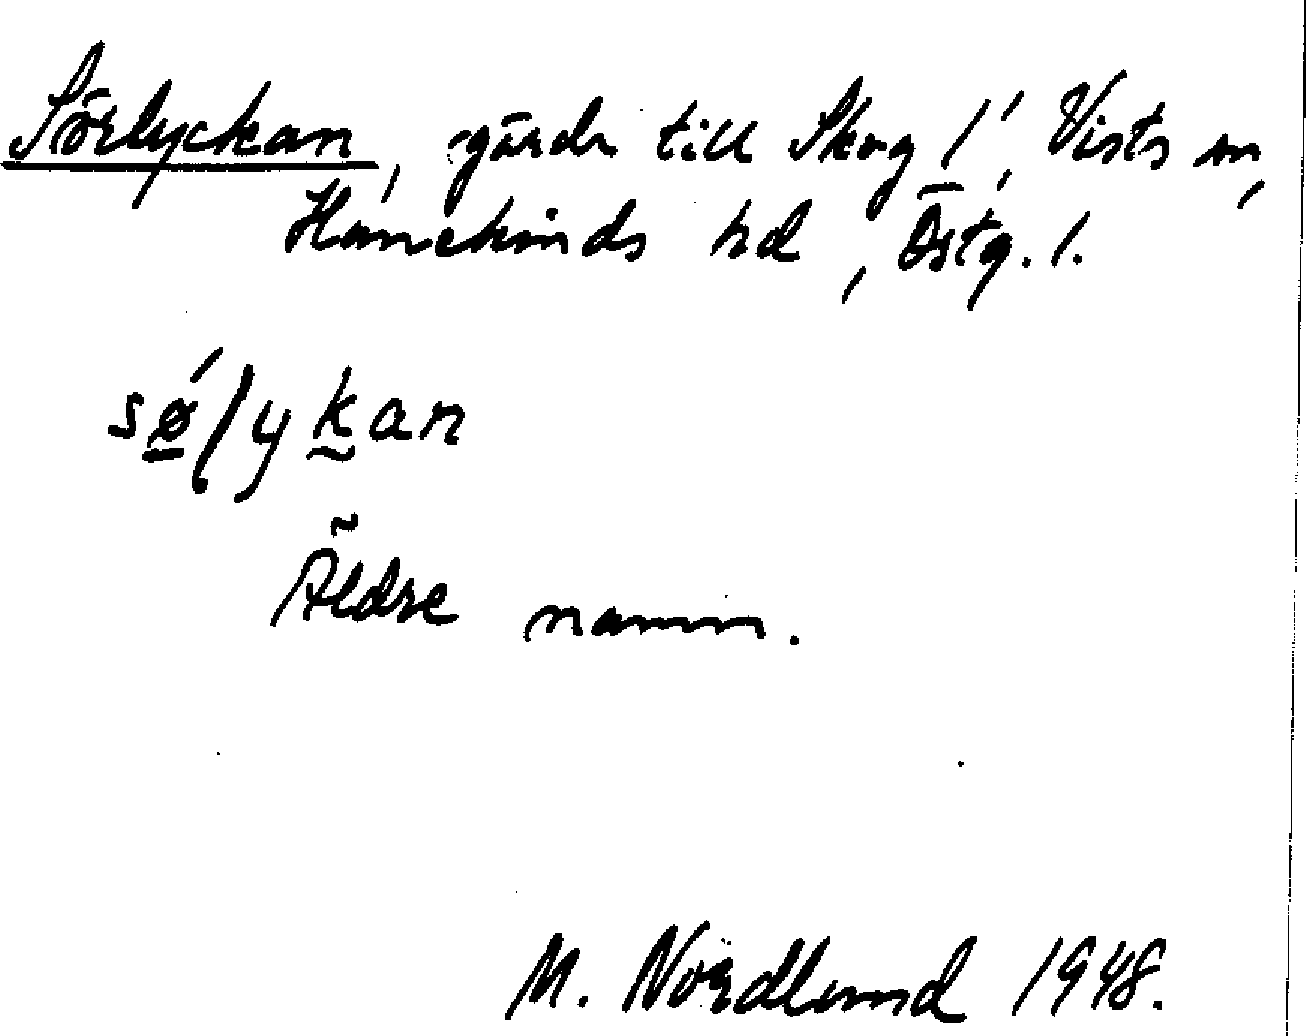 Sörlyckan, gärde till Skog 1, Vists sn,
Hanekinds hd, Östg. l.
sǿ̠lyk̰an
Äldre namn.
M. Nordlund 1948.